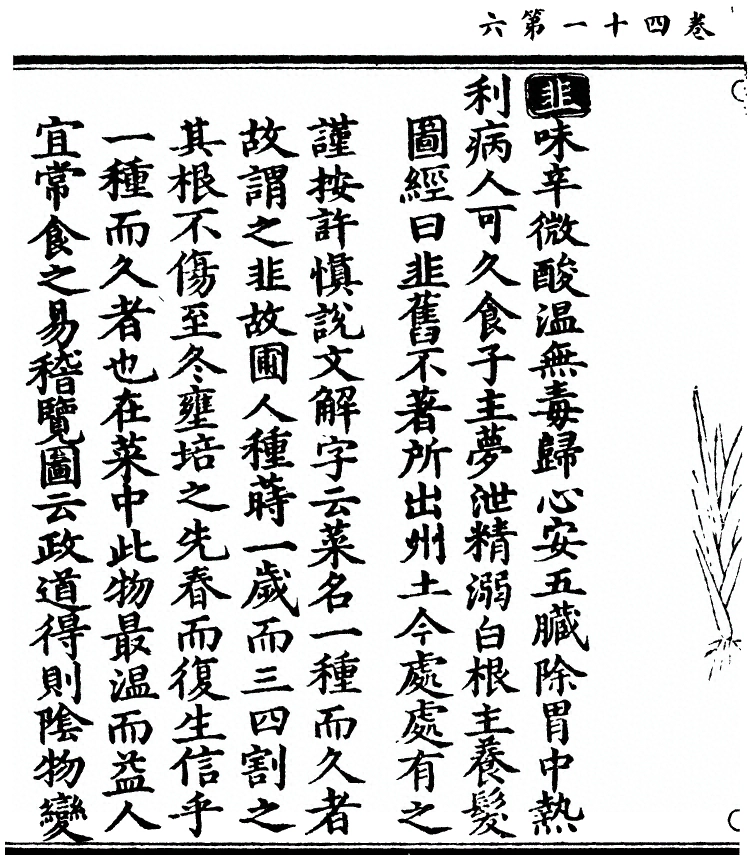 卷四十一第六
韭味辛微酸温無毒歸心安五臟除胃中熱
利病人可久食子主夢泄精溺白根主養髮
圖經曰韭舊不著所出州土今處處有之
謹按許慎說文解字云菜名一種而久者
故謂之韭故圃人種蒔一歲而三四割之
其根不傷至冬壅培之先春而復生信乎
一種而久者也在菜中此物最温而益人
宜常食之易稽覽圖云政道得則陰物變